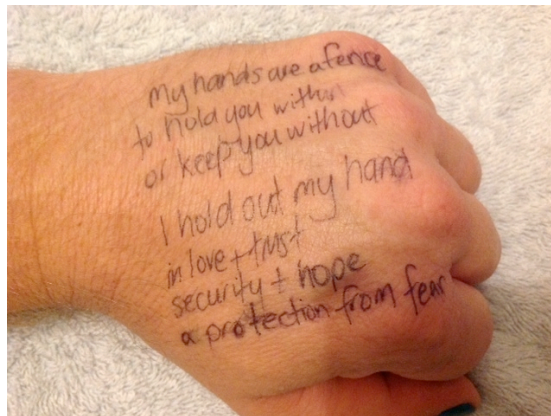 my hands are a fence
to hold you within
or keep you without
I hold out my hand
in love + trust
security + hope
a protection from fear